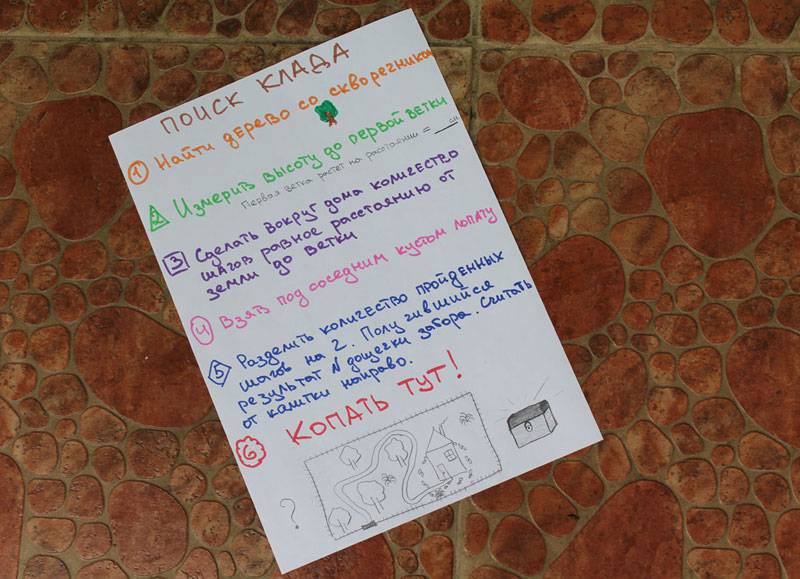 ПОИСК КЛАДА
① Найти дерево со скворечником
2 Измерить высоту до первой ветки
Первая ветка растёт на расстоянии = __ см
3 Сделать вокруг дома количество
шагов равное расстоянию от
земли до ветки
4 Взять под соседним кустом лопату
5 Разделить количество пройденных
шагов на 2. Получившийся
результат N дощечки забора. Считать
от калитки направо.
6 КОПАТЬ ТУТ!
?